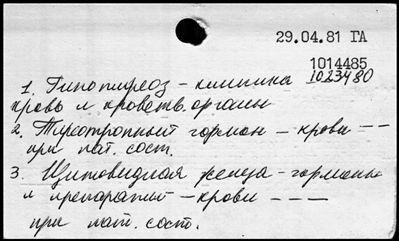 29.04.81 ГА
1014485
1023480
1. Гипотиреоз - клиника
кровь и кроветв. органы
2. Тиреотропный гормон - крови - -
при пат. сост.
3. Щитовидная железа - гормоны
и препараты - крови - - -
при пат. сост.